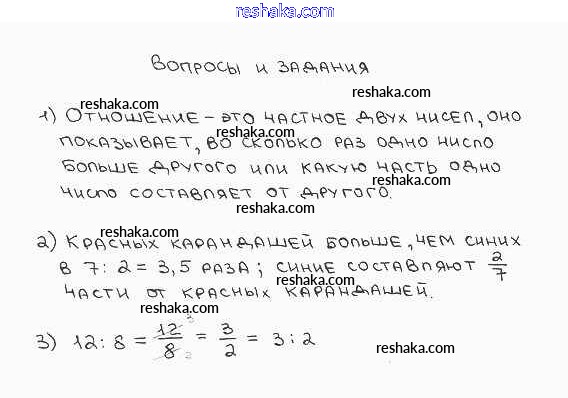 reshaka.com
ВОПРОСЫ И ЗАДАНИЯ
reshaka.com
reshaka.com
1) ОТНОШЕНИЕ – ЭТО ЧАСТНОЕ ДВУХ ЧИСЕЛ, ОНО
reshaka.com
ПОКАЗЫВАЕТ, ВО СКОЛЬКО РАЗ ОДНО ЧИСЛО
БОЛЬШЕ ДРУГОГО ИЛИ КАКУЮ ЧАСТЬ ОДНО
reshaka.com
ЧИСЛО СОСТАВЛЯЕТ ОТ ДРУГОГО.
reshaka.com
reshaka.com
2) КРАСНЫХ КАРАНДАШЕЙ БОЛЬШЕ, ЧЕМ СИНИХ
В 7 : 2 = 3,5 РАЗА ; СИНИЕ СОСТАВЛЯЮТ 2/7
reshaka.com
ЧАСТИ ОТ КРАСНЫХ КАРАНДАШЕЙ.
reshaka.com
3) 12 : 8 = 12 3/8 2 = 3/2 = 3 : 2
reshaka.com